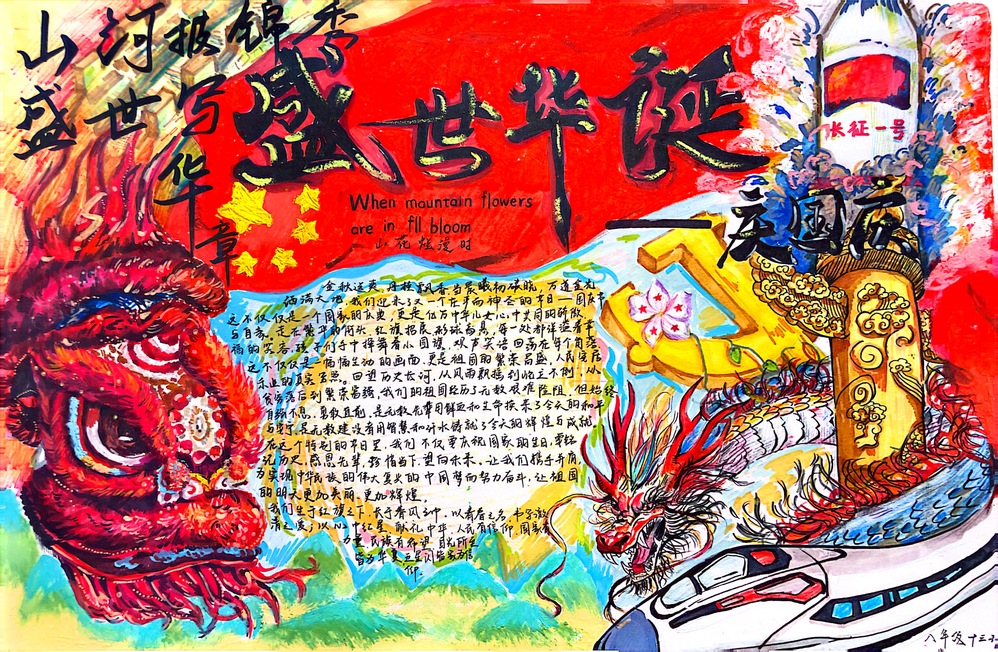 山河披锦秀
盛世写华章
盛世华诞
长征一号
When mountain flowers
are in fll bloom
山花烂漫时
庆国庆
金秋送爽,丹桂飘香,当晨曦初破晓,万道金光
洒满大地,我们迎来了又一个庄严而神圣的节日—国庆节
这不仅仅是一个国家的庆典,更是亿万中华儿女心中共同的骄傲
与自豪。走在繁华的街头,红旗招展,形球高悬,每一处都洋溢着幸
福的笑容,孩子们手中挥舞着小国旗,欢声笑语回荡在每个角落
这不仅仅是一幅幅生动的画面,更是祖国的繁荣昌盛,人民安居
乐业的真实写照。回望历史长河,从风雨飘摇到屹立不倒,从
贫穷落后到繁荣富强,我们的祖国经历了无数艰难险阻,但始终
自强不息,勇敢直前,是无数先辈用鲜血和生命换来了今天的和平
与安宁,是无数建设者用智慧和汗水铸就了今天的辉煌与成就,
在这个特别的节日里,我们不仅要庆祝国家的生日,要铭
记历史,感恩先辈,珍惜当下,望向未来,让我们携手并肩,
为实现中华民族的伟大复兴的中国梦而努力奋斗,让祖国
的明天更加美丽,更加辉煌。
我们生于红旗之下,长于春风之中,以青春之名,书写
清之爱,以心中红星,献礼中华,人民有信仰,国家有
力量,民族有希望,目光所至
皆为华夏,五星闪耀皆为信
仰.
八年级十三